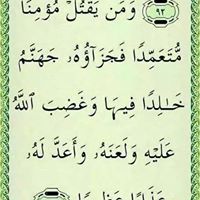 ٩٢ وَمَن يَقْتُلْ مُؤْمِنًا
مُّتَعَمِّدًا فَجَزَآؤُهُۥ جَهَنَّمُ
خَـٰلِدًا فِيهَا وَغَضِبَ ٱللَّهُ
عَلَيْهِ وَلَعَنَهُۥ وَأَعَدَّ لَهُۥ
عَذَابًا عَظِيمًا